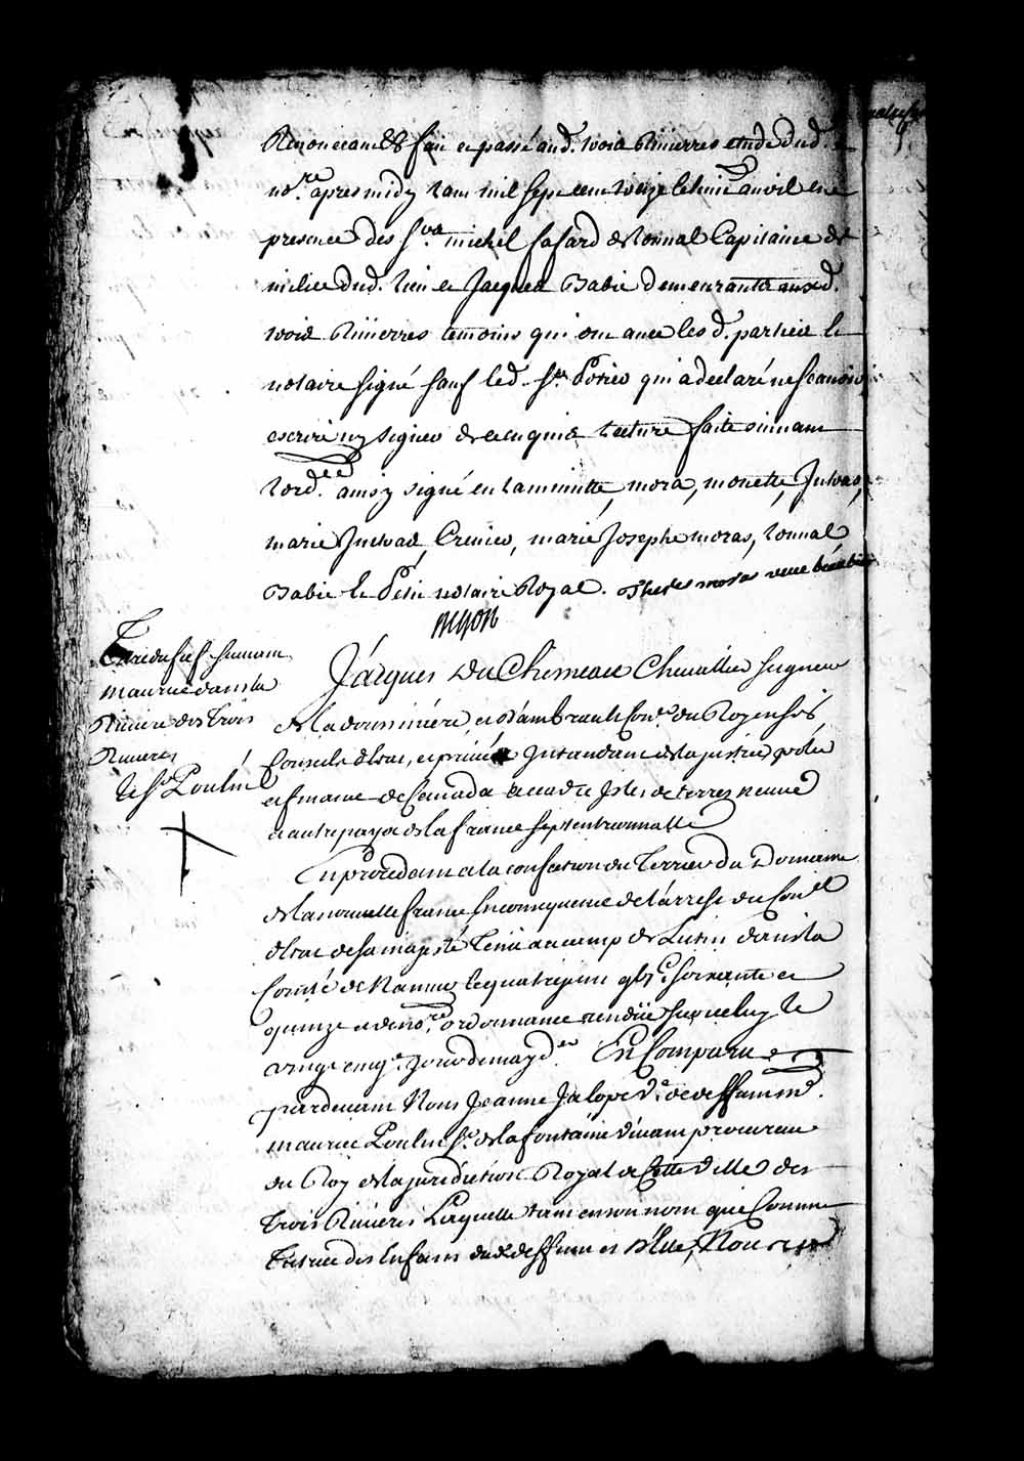 Renoncant &c fait et passé aud. trois Rivierres etude dud.
no.re apres midy l'an mil sept cent treize le huit.e avril en
presence des S.rs michel fafard de Lonnal Capitaine de
milice dud. lieu et Jacques Babie demeurants auxd.
trois Rivierres temoins qui ont avec les d. parties et
notaire signé sauf led. S.r Potier qui a declaré ne scavoir
escrire ny signer de ce enquis lecture faite suivant
l'ord.ce ainsy signé en la minutte, mora, monette,
marie, Crevier, marie Josephe moras, Lonnal
Babie et Petit notaire Royal.
Begon
Titre du fief St
maurice dans la
Riviere des trois
Rivieres
Le Sr Poulin
Jacques Du Chesneau Chevallier seigneur
de la doussiniere et d'ambrault Con.er du Roy en ses
Conseils d'etat et privé Intendant de la justice police
et finance de Canada acadie Isles de terre neuve
et autre pays de la france septentrionnalle
En procedant a la confection du Terrier du Domaine
de la nouvelle france En consequence de l'arrest du Con.el
d'etat de sa majesté Tenu au camp de Luting dans la
Comté de Namur le quatriesme soixante et
quinze et de no.re ordonnance rendue sur iceluy le
vingt cinq.e jour de may d.er Est Comparue
pardevant Nous Jeanne Jalope V.e de deffunt
maurice Poulin S.r de la fontaine vivant procureur
du Roy de la jurediction Royal de Cette ville des
trois Rivieres Laquelle tant en son nom que Comme
Tutrice des Enfans dud. deffunt et d'Elle, Nous